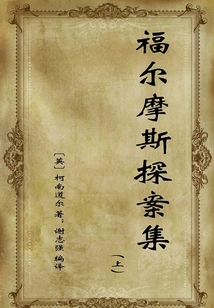 福尔摩斯探案集
(上)
[英]
柯南道尔 著；谢志强 编译